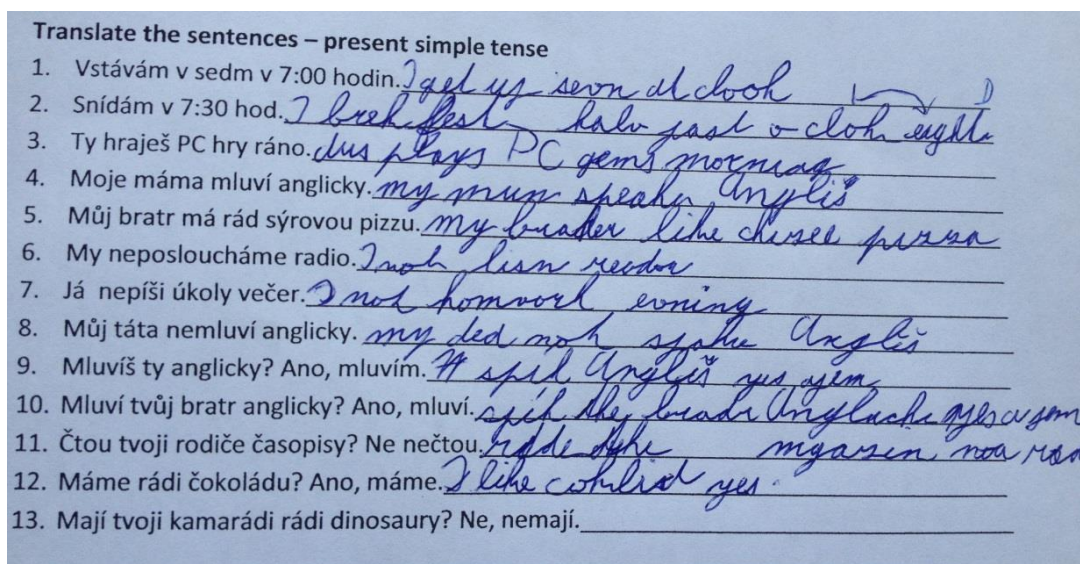 Translate the sentences – present simple tense
1. Vstávám v sedm v 7:00 hodin. I get up sevon at clooh
2. Snídám v 7:30 hod. I brekfest halv past o cloh eight
3. Ty hraješ PC hry ráno. plays PC gems morning
4. Moje máma mluví anglicky. my mum speake Angliš
5. Můj bratr má rád sýrovou pizzu. my brader like chesee pizza
6. My neposloucháme radio. I not lisn
7. Já nepíši úkoly večer. I not homvork evning
8. Můj táta nemluví anglicky. my ded not Angliš
9. Mluvíš ty anglicky? Ano, mluvím. spik Angliš yes ajem
10. Mluví tvůj bratr anglicky? Ano, mluví. the
11. Čtou tvoji rodiče časopisy? Ne nečtou. mgazen
12. Máme rádi čokoládu? Ano, máme. I like yes.
13. Mají tvoji kamarádi rádi dinosaury? Ne, nemají.